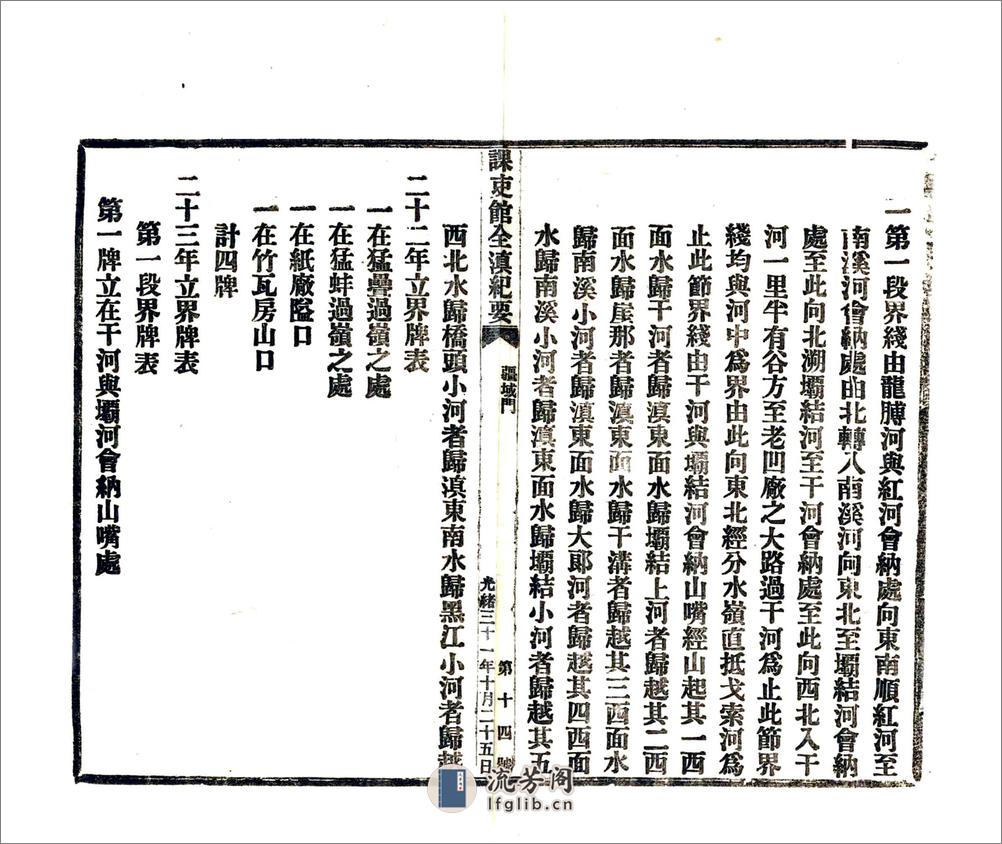 一第一段界綫由龍膊河與紅河會納處向東南順紅河至
南溪河會納處由北轉入南溪河向東北至壩結河會納
處至此向北溯壩結河至干河會納處至此向西北入干
河一里半有谷方至老凹廠之大路過干河爲止此節界
綫均與河中爲界由此向東北經分水嶺直抵戈索河爲
止此節界綫由干河與壩結河會納山嘴經山起其一西
面水歸干河者歸滇東面水歸壩結上河者歸越其二西
面水歸崖那者歸滇東面水歸干溝者歸越其三西面水
歸南溪小河者歸滇東面水歸大郞河者歸越其四西面
水歸南溪小河者歸滇東面水歸壩結小河者歸越其五
課吏館全滇紀要
疆域門
第十四號
光緒三十一年十月二十五日
西北水歸橋頭小河者歸滇東南水歸黑江小河者歸越
二十二年立界牌表
一在猛疊過嶺之處
一在猛蚌過嶺之處
一在紙廠隘口
一在竹瓦房山口
計四牌
二十三年立界牌表
第一段界牌表
第一牌立在干河與壩河會納山嘴處
流芳阁
lfglib.cn